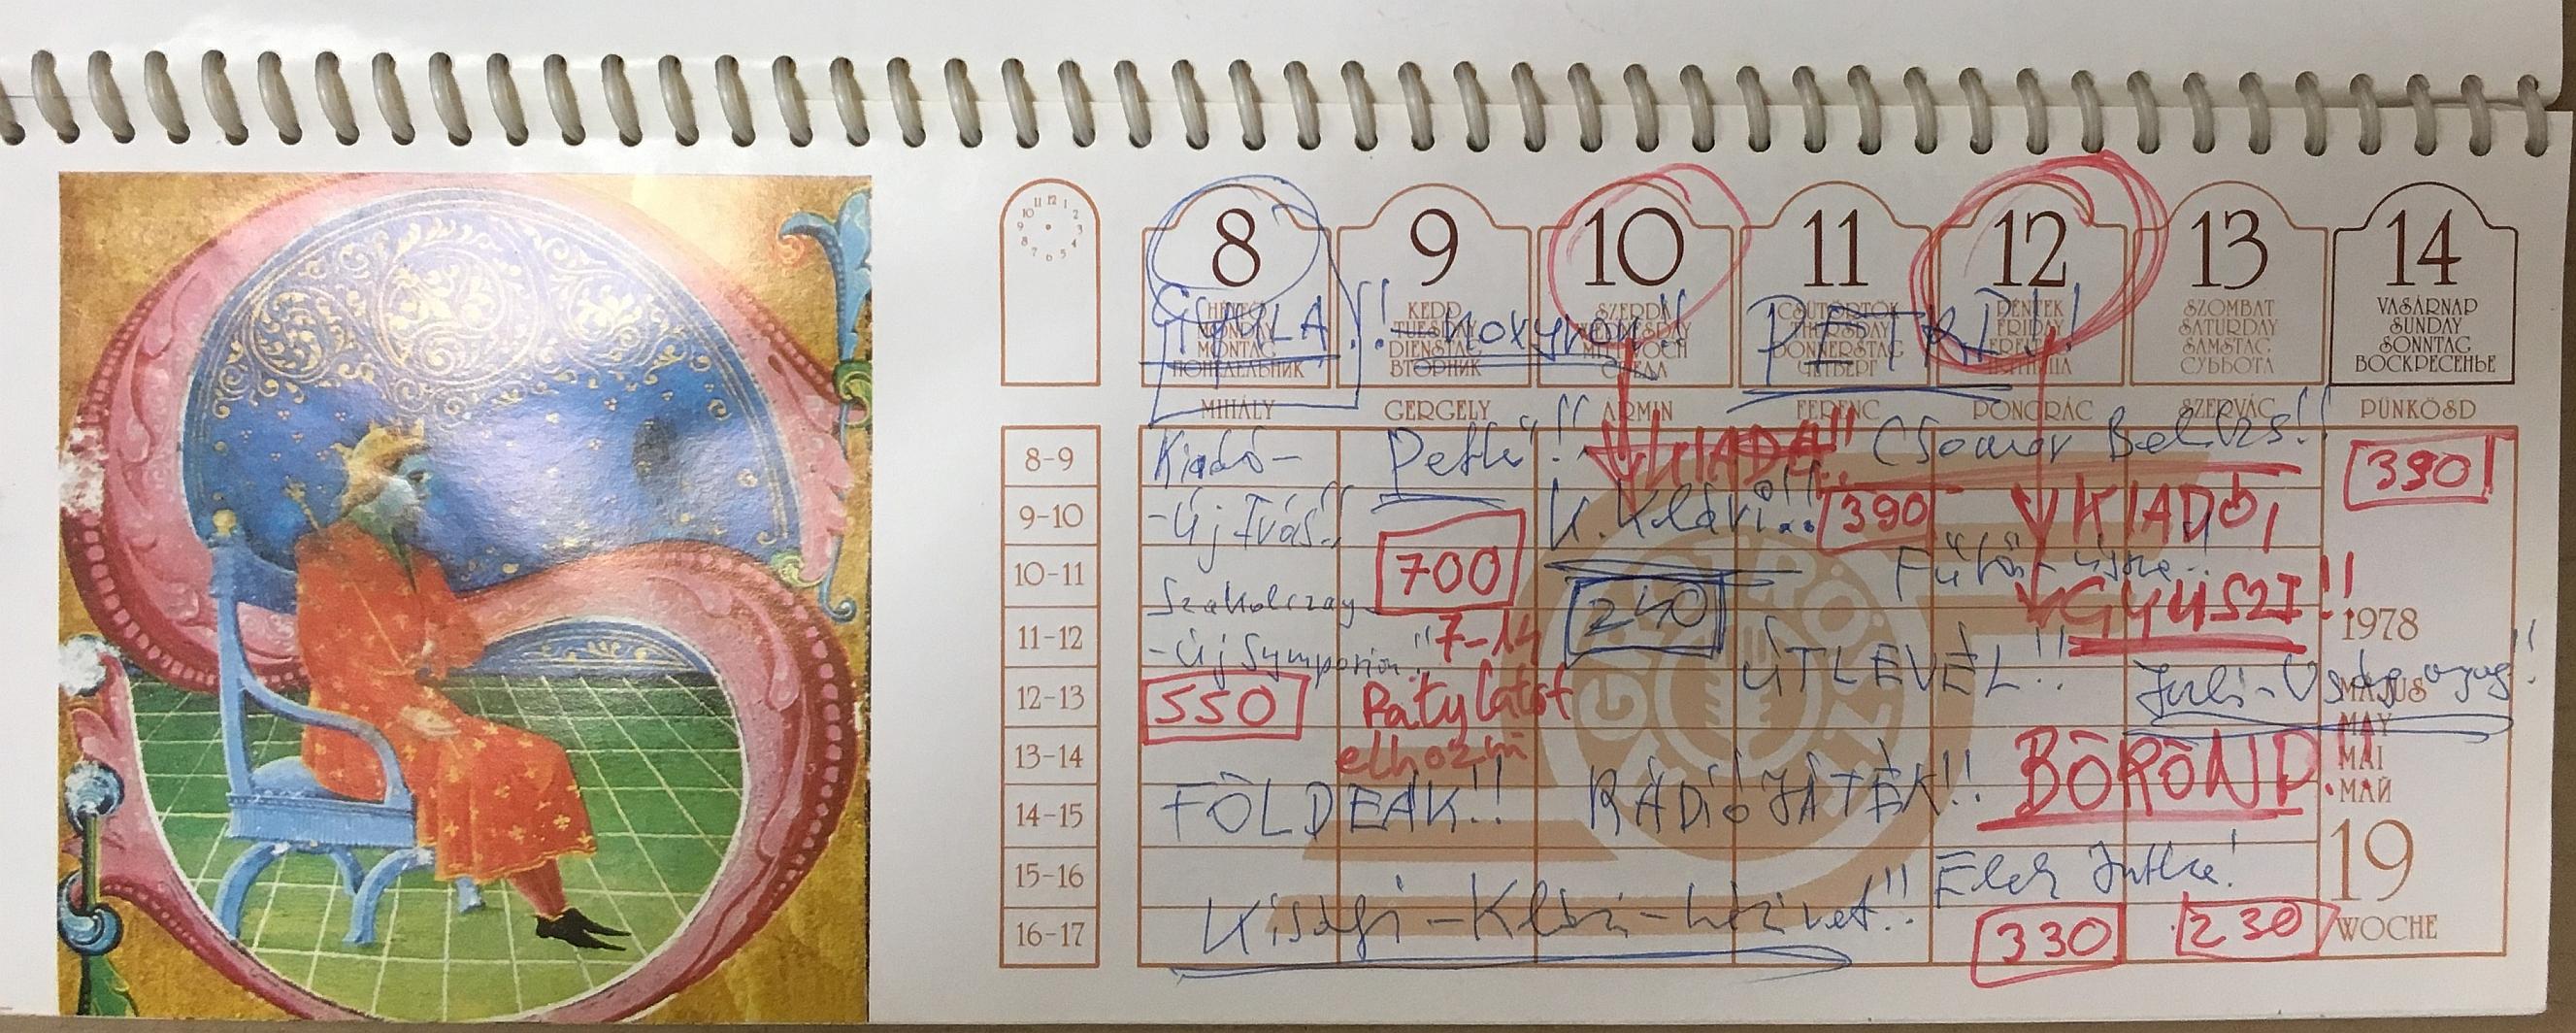 11 12 1
10 2
9 3
8 4
7 6 5
8 9 10 11 12 13 14
HÉTFŐ KEDD SZERDA CSÜTÖRTÖK PÉNTEK SZOMBAT VASÁRNAP
MONDAY TUESDAY WEDNESDAY THURSDAY FRIDAY SATURDAY SUNDAY
MONTAG DIENSTAG MITTWOCH DONNERSTAG FREITAG SAMSTAG SONNTAG
ПОНЕДЕЛЬНИК ВТОРНИК СРЕДА ЧЕТВЕРГ ПЯТНИЦА СУББОТА ВОСКРЕСЕНЬЕ
GYULA!! PETRI!!
MIHÁLY GERGELY ÁRMIN FERENC PONGRÁC SZERVÁC PÜNKÖSD
8-9 Kiadó- !! KIADÓ!! Csomor 390
9-10 -Új Írás!! K. Klári!! 390 KIADÓ,
700
10-11 Szakolczay GYUSZI!!
240
11-12 -Új Symposion" 7-14 ÚTLEVÉL!! 1978
12-13 550 elhozni Juli- MÁJUS
MAY
13-14 BŐRÖND! MAI
14-15 FÖLDEÁK!! RÁDIÓJÁTÉK!! МАЙ
15-16 Elek Jutka! 19
16-17 330 230 WOCHE